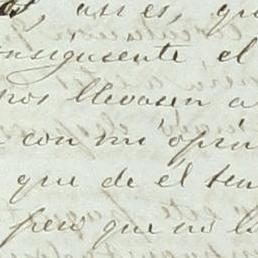 así es, que
consiguiente el
nos llevasen a
con mi opin
que de él ten
pero que no la